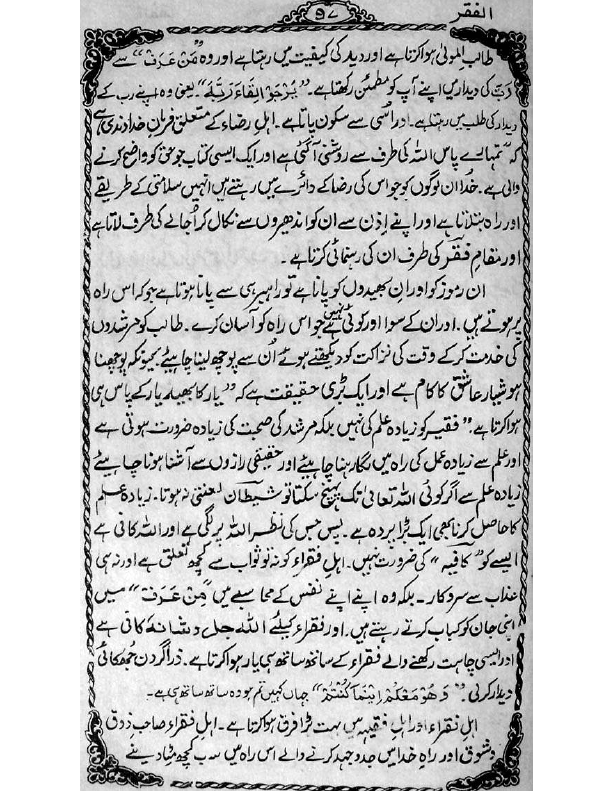 الفقر
۹۷
طالب المولیٰ ہوا کرتا ہے اور دید کی کیفیت میں رہتا ہے اور وہ "مَنْ عَرَفَ" سے
رَبّ کی دیدار میں اپنے آپ کو مطمئن رکھتا ہے۔ "یَرْجُوْ الِقَاءَ رَبِّهٖ" یعنی وہ اپنے رب کے
دیدار کی طلب میں رہتا ہے۔ اور اُسی سے سکون پاتا ہے۔ اہلِ رضاء کے متعلق فرمانِ خداوندی ہے
کہ "تمہارے پاس اللہ کی طرف سے روشنی آ گئی ہے اور ایک ایسی کتاب جو حق کو واضح کرنے
والی ہے۔ خدا ان لوگوں کو جو اس کی رضا کے دائرے میں رہتے ہیں انہیں سلامتی کے طریقے
اور راہ بتلاتا ہے اور اپنے اِذن سے ان کو اندھیروں سے نکال کر اُجالے کی طرف لاتا ہے
اور مقامِ فقر کی طرف ان کی رہنمائی کرتا ہے۔
ان رموز کو اور ان بھیدوں کو پانا ہے تو راہبر ہی سے پانا ہوتا ہے جو کہ اس راہ
پر ہوتے ہیں۔ اور ان کے سوا اور کوئی نہیں ہے جو اس راہ کو آسان کرے۔ طالب کو مرشدوں
کی خدمت کر کے وقت کی نزاکت کو دیکھتے ہوئے اُن سے پوچھ لینا چاہیئے۔ کیونکہ پوچھنا
ہوشیار عاشق کا کام ہے اور ایک بڑی حقیقت ہے کہ "یار کا بھید یار کے پاس ہی
ہوا کرتا ہے۔" فقیر کو زیادہ علم کی نہیں بلکہ مرشد کی صحبت کی زیادہ ضرورت ہوتی ہے
اور علم سے زیادہ عمل کی راہ میں لگا رہنا چاہیئے اور حقیقی رازوں سے آشنا ہونا چاہیئے
زیادہ علم سے اگر کوئی اللہ تعالیٰ تک پہنچ سکتا تو شیطان لعنتی نہ ہوتا۔ زیادہ علم
کا حاصل کرنا بھی ایک بڑا پردہ ہے۔ پس جس کی نظر اللہ پر لگی ہے اور اللہ کافی ہے
ایسے کو "کافیہ" کی ضرورت نہیں۔ اہلِ فقراء کو نہ تو ثواب سے کچھ تعلق ہے اور نہ ہی
عذاب سے سروکار۔ بلکہ وہ اپنے اپنے نفس کے محاسبے میں "مَنْ عَرَفَ" میں
اپنی جان کو کباب کرتے رہتے ہیں۔ اور فقراء کیلئے اللہ جل و شانہٗ کافی ہے
اور ایسی چاہت رکھنے والے فقراء کے ساتھ ساتھ ہی یار ہوا کرتا ہے۔ ذرا گردن جُھکائی
دیدار کر لی "وَ هُوَ مَعَکُمْ اَیْنَمَا کُنْتُمْ" جہاں کہیں تم ہو وہ ساتھ ساتھ ہی ہے۔
اہلِ فقراء اور اہلِ فقیہہ میں بہت بڑا فرق ہوا کرتا ہے۔ اہلِ فقراء صاحبِ ذوق
و شوق اور راہِ خدا میں جدوجہد کرنے والے اس راہ میں سب کچھ مٹا دینے